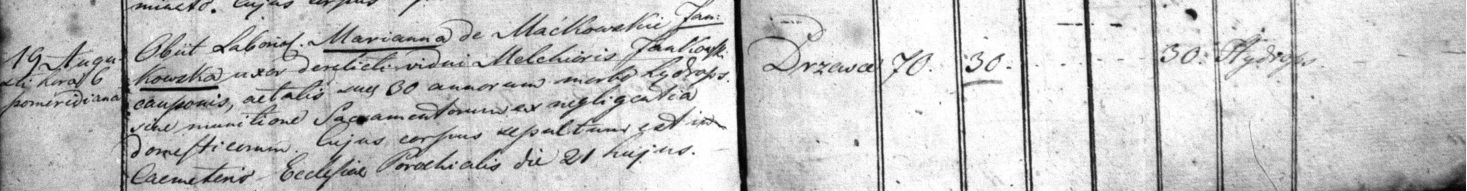 19 Augu-
sti hora 6
pomeridiana
Obiit Labores. Marianna de Maćkowskie Jan-
kowska uxor derelicti vidui Melchioris Jankowski
cauponis, aetatis suae 30 annorum morbo hydrops.
sine munitione Sacramentorum ex negligentia
domesticorum. Cujus corpus sepultum est in
Caemeterio Ecclesiae Parochialis die 21 hujus.
Drzewce 70. 30. 30. Hydrops